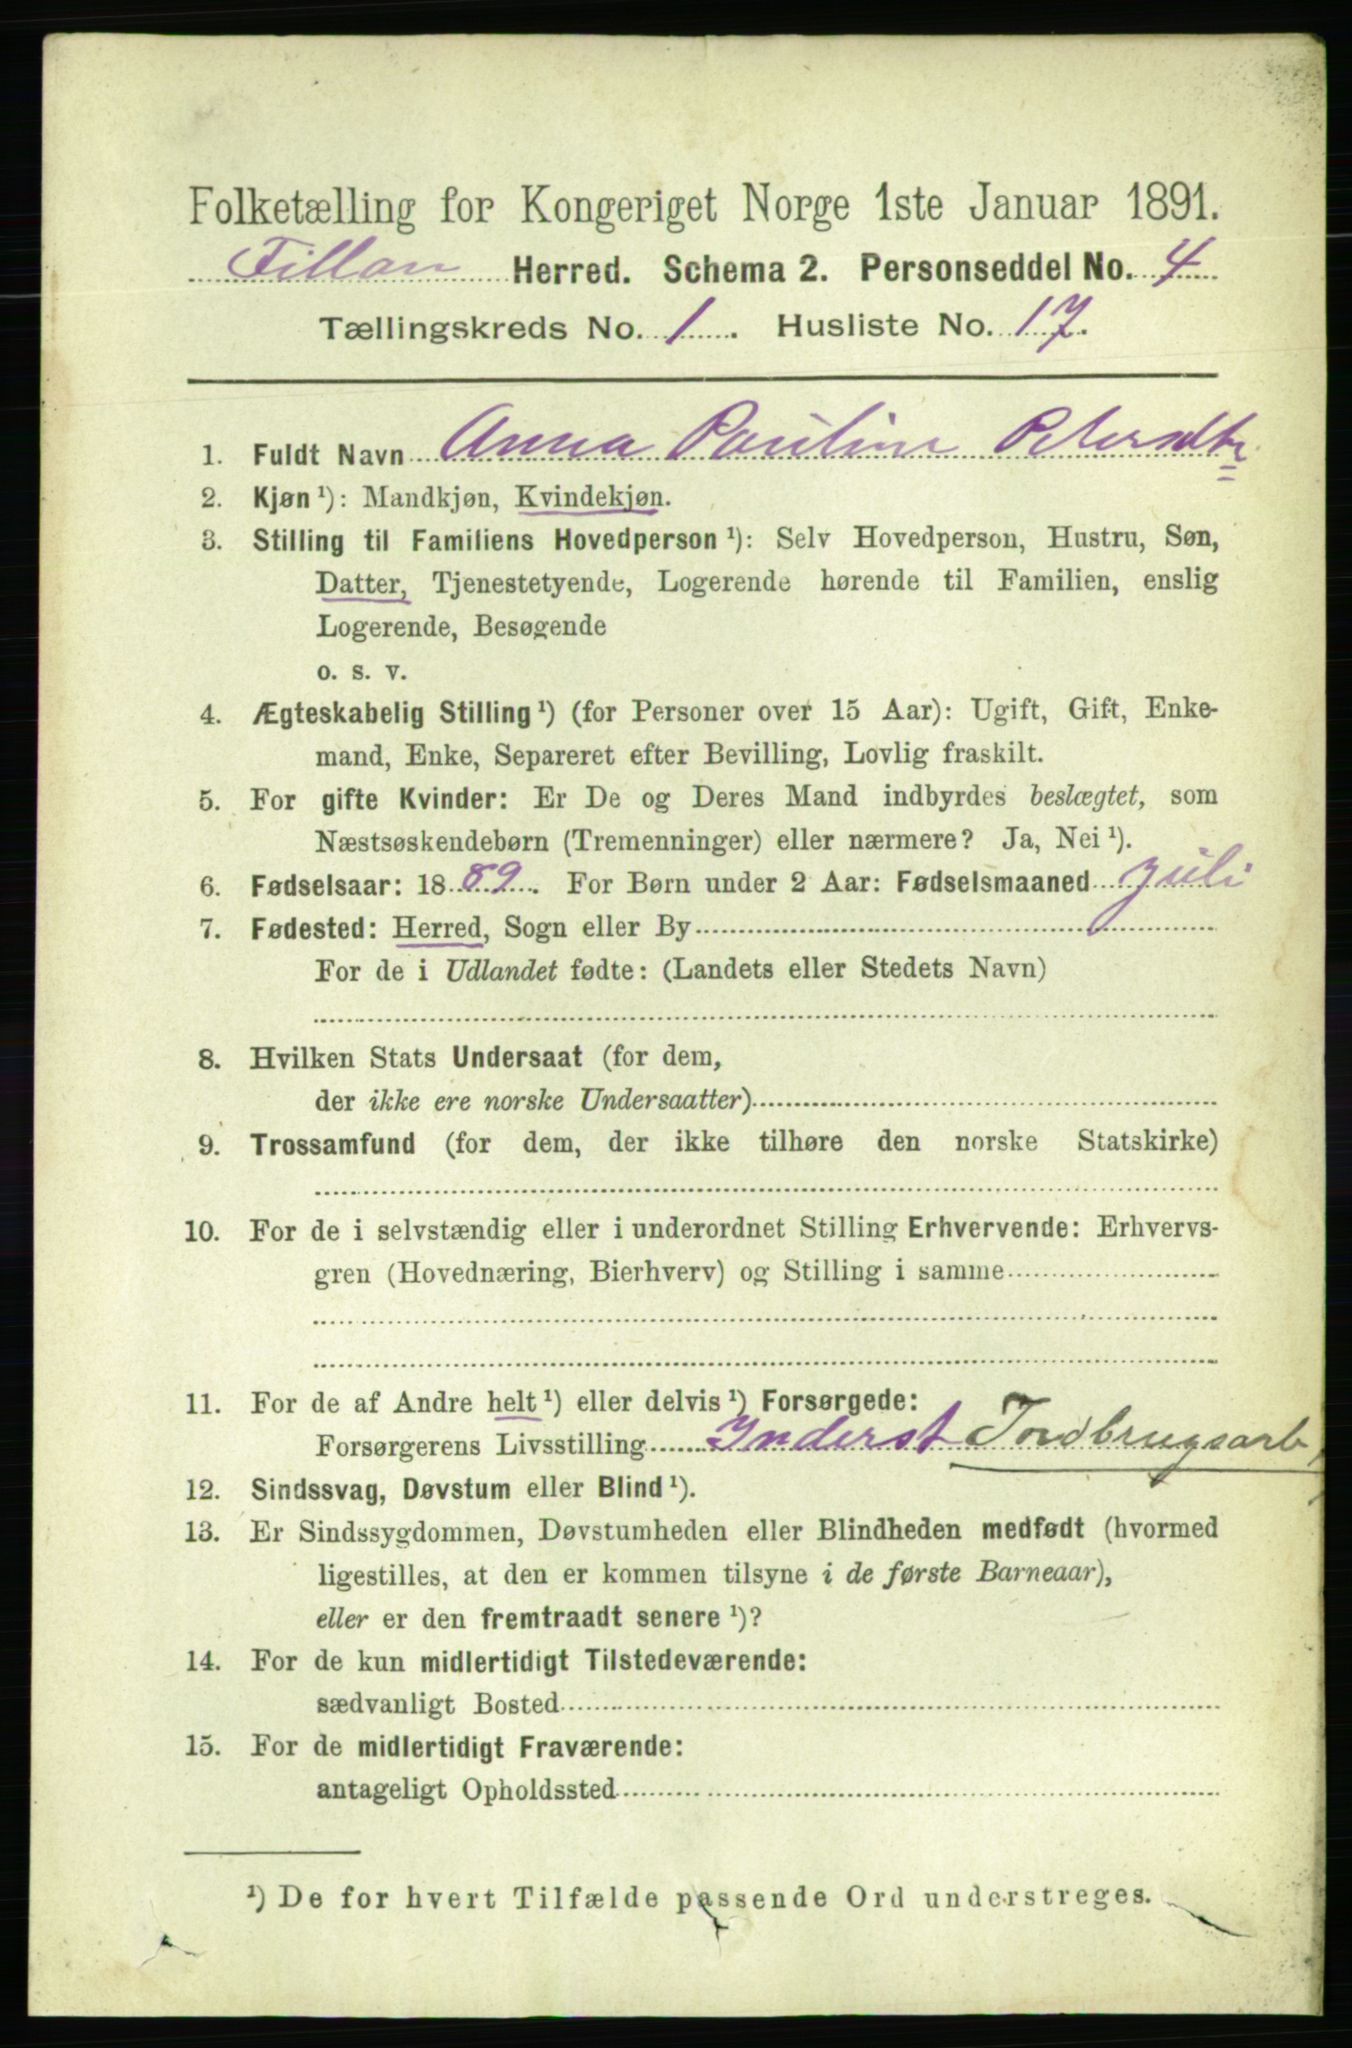 Folketælling for Kongeriget Norge 1ste Januar 1891.
Fillan Herred. Schema 2. Personseddel No. 4
Tællingskreds No. 1. Husliste No. 17.
1. Fuldt Navn Anna Pauline Petersdtr
2. Kjøn ¹): Mandkjøn, Kvindekjøn.
3. Stilling til Familiens Hovedperson ¹): Selv Hovedperson, Hustru, Søn,
Datter, Tjenestetyende, Logerende hørende til Familien, enslig
Logerende, Besøgende
o. s. v.
4. Ægteskabelig Stilling ¹) (for Personer over 15 Aar): Ugift, Gift, Enke-
mand, Enke, Separeret efter Bevilling, Lovlig fraskilt.
5. For gifte Kvinder: Er De og Deres Mand indbyrdes beslægtet, som
Næstsøskendebørn (Tremenninger) eller nærmere? Ja, Nei ¹).
6. Fødselsaar: 1889. For Børn under 2 Aar: Fødselsmaaned Juli
7. Fødested: Herred, Sogn eller By
For de i Udlandet fødte: (Landets eller Stedets Navn)
8. Hvilken Stats Undersaat (for dem,
der ikke ere norske Undersaatter)
9. Trossamfund (for dem, der ikke tilhøre den norske Statskirke)
10. For de i selvstændig eller i underordnet Stilling Erhvervende: Erhvervs-
gren (Hovednæring, Bierhverv) og Stilling i samme
11. For de af Andre helt ¹) eller delvis ¹) Forsørgede:
Forsørgerens Livsstilling Inderst Jordbrugsarb
12. Sindssvag, Døvstum eller Blind ¹).
13. Er Sindssygdommen, Døvstumheden eller Blindheden medfødt (hvormed
ligestilles, at den er kommen tilsyne i de første Barneaar),
eller er den fremtraadt senere ¹)?
14. For de kun midlertidigt Tilstedeværende:
sædvanligt Bosted
15. For de midlertidigt Fraværende:
antageligt Opholdssted
¹) De for hvert Tilfælde passende Ord understreges.